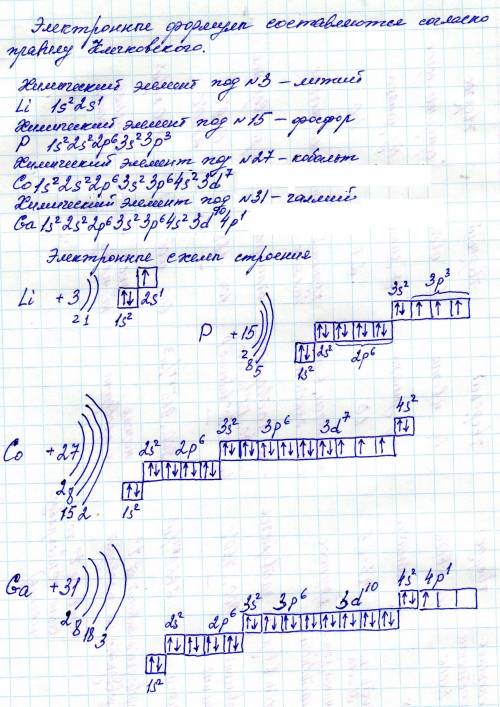 Электронные формулы составляются согласно
правилу Клечковского.
Химический элемент под №3 – литий
Li 1s² 2s¹
Химический элемент под №15 – фосфор
P 1s² 2s² 2p⁶ 3s² 3p³
Химический элемент под №27 – кобальт
Co 1s² 2s² 2p⁶ 3s² 3p⁶ 4s² 3d⁷
Химический элемент под №31 – галлий
Ga 1s² 2s² 2p⁶ 3s² 3p⁶ 4s² 3d¹⁰ 4p¹
Электронные схемы строение
Li +3 ↑
↑↓ 2s¹
2 1 1s²
3s² 3p³
P +15 ↑↓ ↑ ↑ ↑
↑↓ ↑↓ ↑↓ ↑↓
2 8 5 ↑↓ 2s² 2p⁶
1s²
4s²
3s² 3p⁶ 3d⁷ ↑↓
Co +27 2s² 2p⁶ ↑↓ ↑↓ ↑↓ ↑↓ ↑↓ ↑↓ ↑ ↑ ↑
↑↓ ↑↓ ↑↓ ↑↓
2 8 ↑↓
15 2 1s²
4s² 4p¹
Ga +31 3s² 3p⁶ 3d¹⁰ ↑↓ ↑
2s² 2p⁶ ↑↓ ↑↓ ↑↓ ↑↓ ↑↓ ↑↓ ↑↓ ↑↓ ↑↓
2 8 18 3 ↑↓ ↑↓ ↑↓ ↑↓
↑↓
1s²